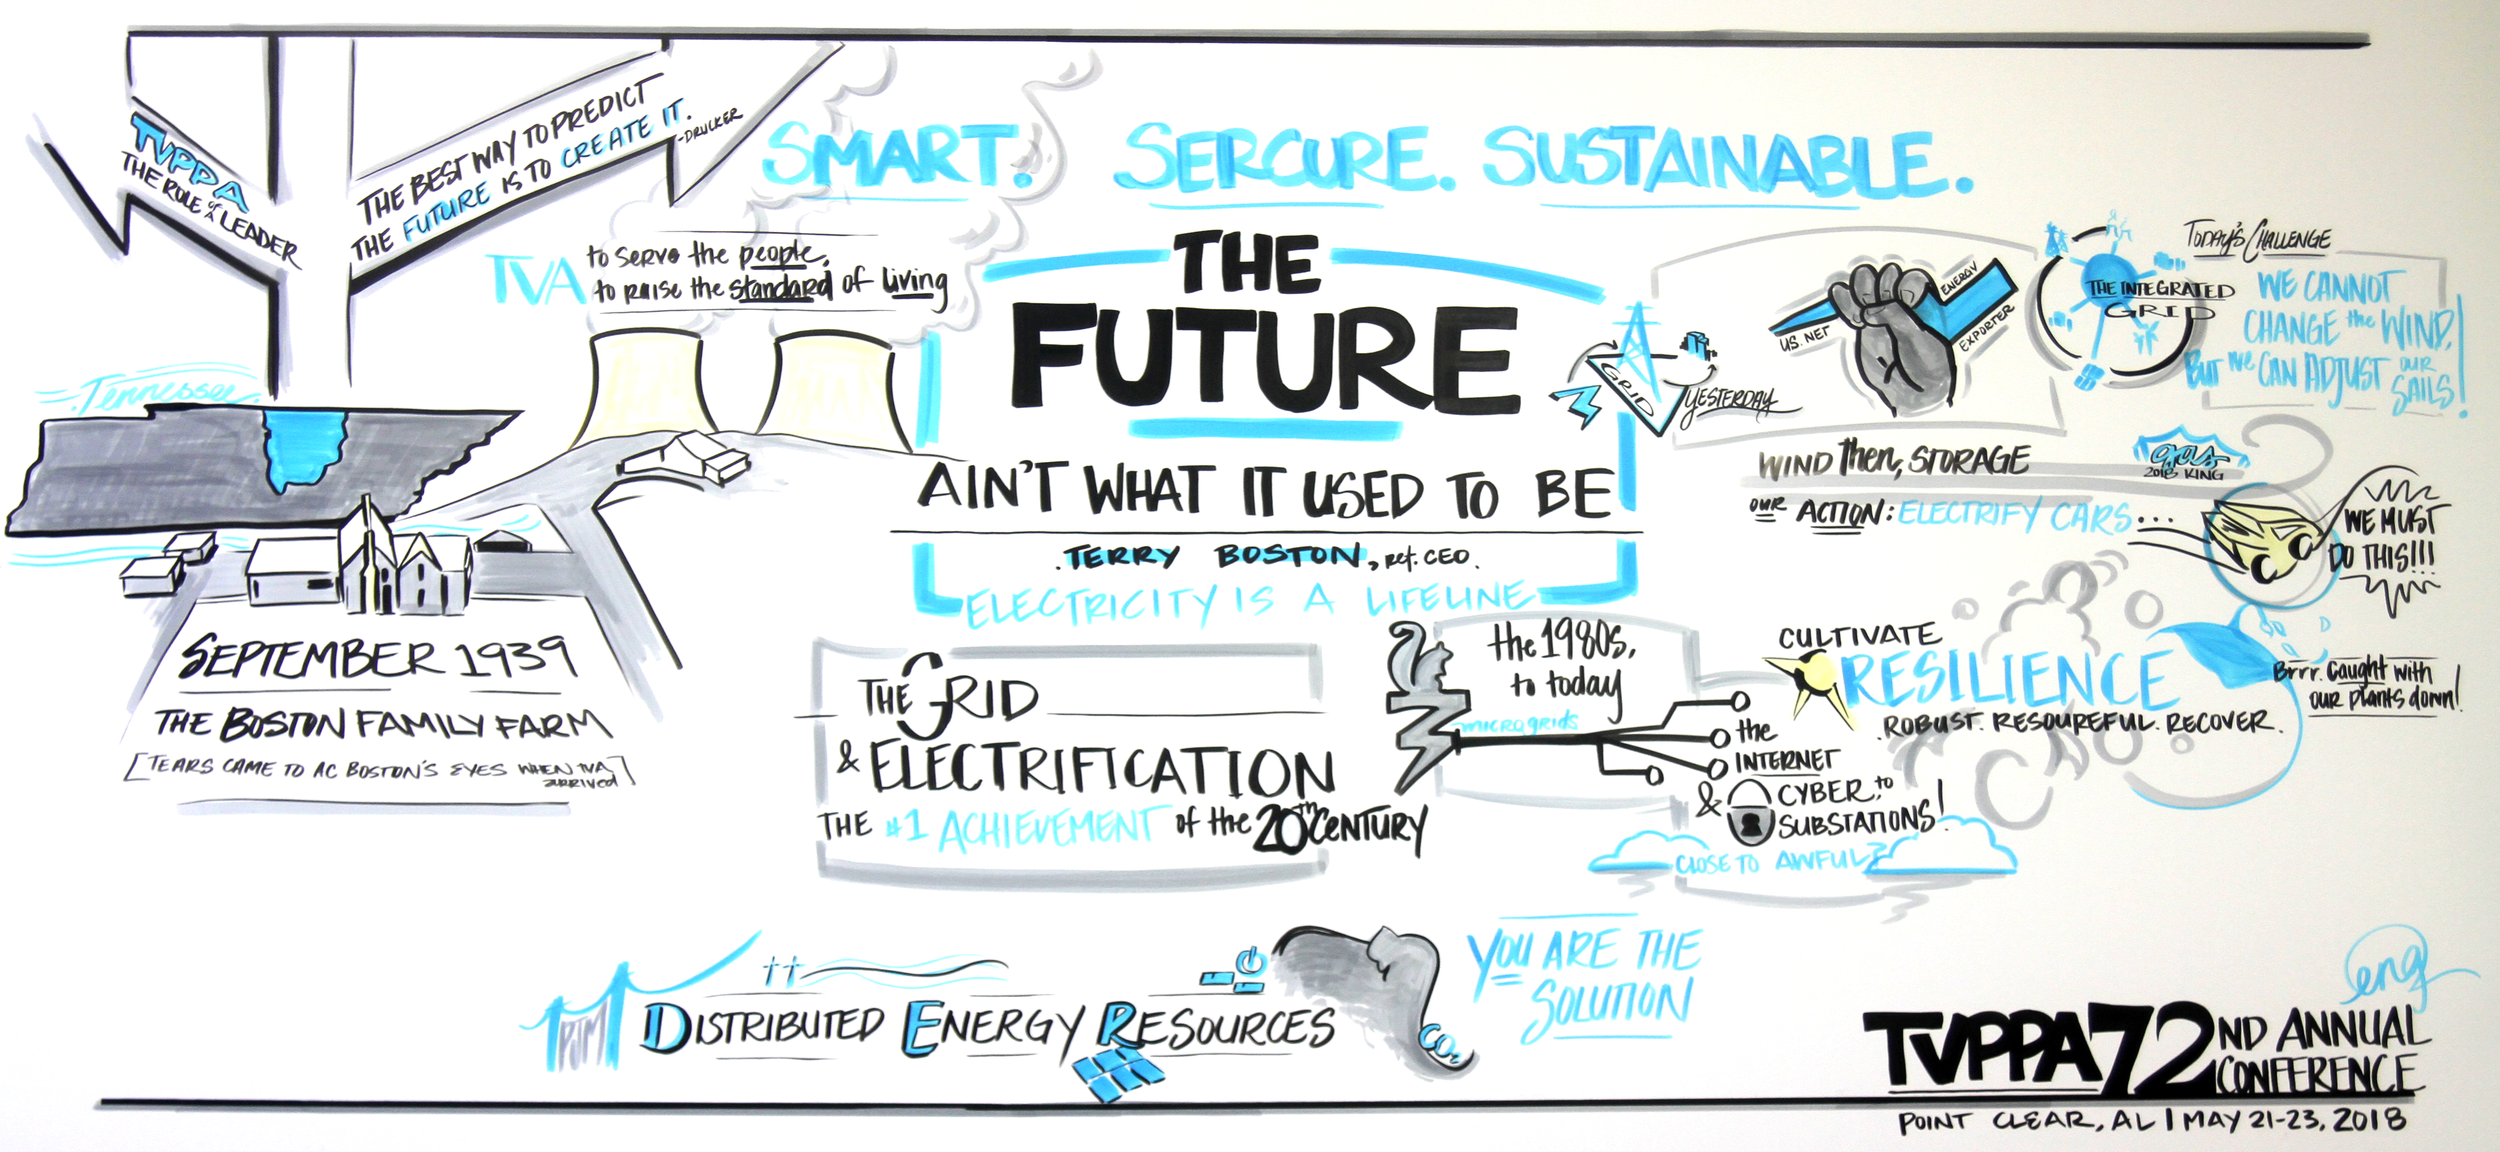 TVPPA
THE ROLE of A LEADER
THE BEST WAY TO PREDICT
THE FUTURE IS TO CREATE IT.
-DRUCKER
SMART. SERCURE. SUSTAINABLE.
TVA
to serve the people,
to raise the standard of living
Tennessee
SEPTEMBER 1939
THE BOSTON FAMILY FARM
[TEARS CAME TO AC BOSTON'S EYES WHEN TVA
arrived]
THE
FUTURE
AIN'T WHAT IT USED TO BE
. TERRY BOSTON, ret. CEO.
ELECTRICITY IS A LIFELINE
THE GRID
& ELECTRIFICATION
THE #1 ACHIEVEMENT of the 20th CENTURY
GRID
YESTERDAY
US. NET
ENERGY
EXPORTER
TODAY'S CHALLENGE
THE INTEGRATED
GRID
WE CANNOT
CHANGE the WIND,
BUT WE CAN ADJUST OUR
SAILS!
WIND then, STORAGE
gas
2018 KING
OUR ACTION: ELECTRIFY CARS...
WE MUST
DO THIS!!!
the 1980s,
to today
microgrids
the
INTERNET
& CYBER to
SUBSTATIONS!
CLOSE TO AWFUL?
CULTIVATE
RESILIENCE
. ROBUST. RESOUREFUL. RECOVER.
Brrr. Caught with
our plants down!
PJM
DISTRIBUTED ENERGY RESOURCES
CO2
YOU ARE THE
SOLUTION
eng
TVPPA 72ND ANNUAL
CONFERENCE
POINT CLEAR, AL | MAY 21-23, 2018